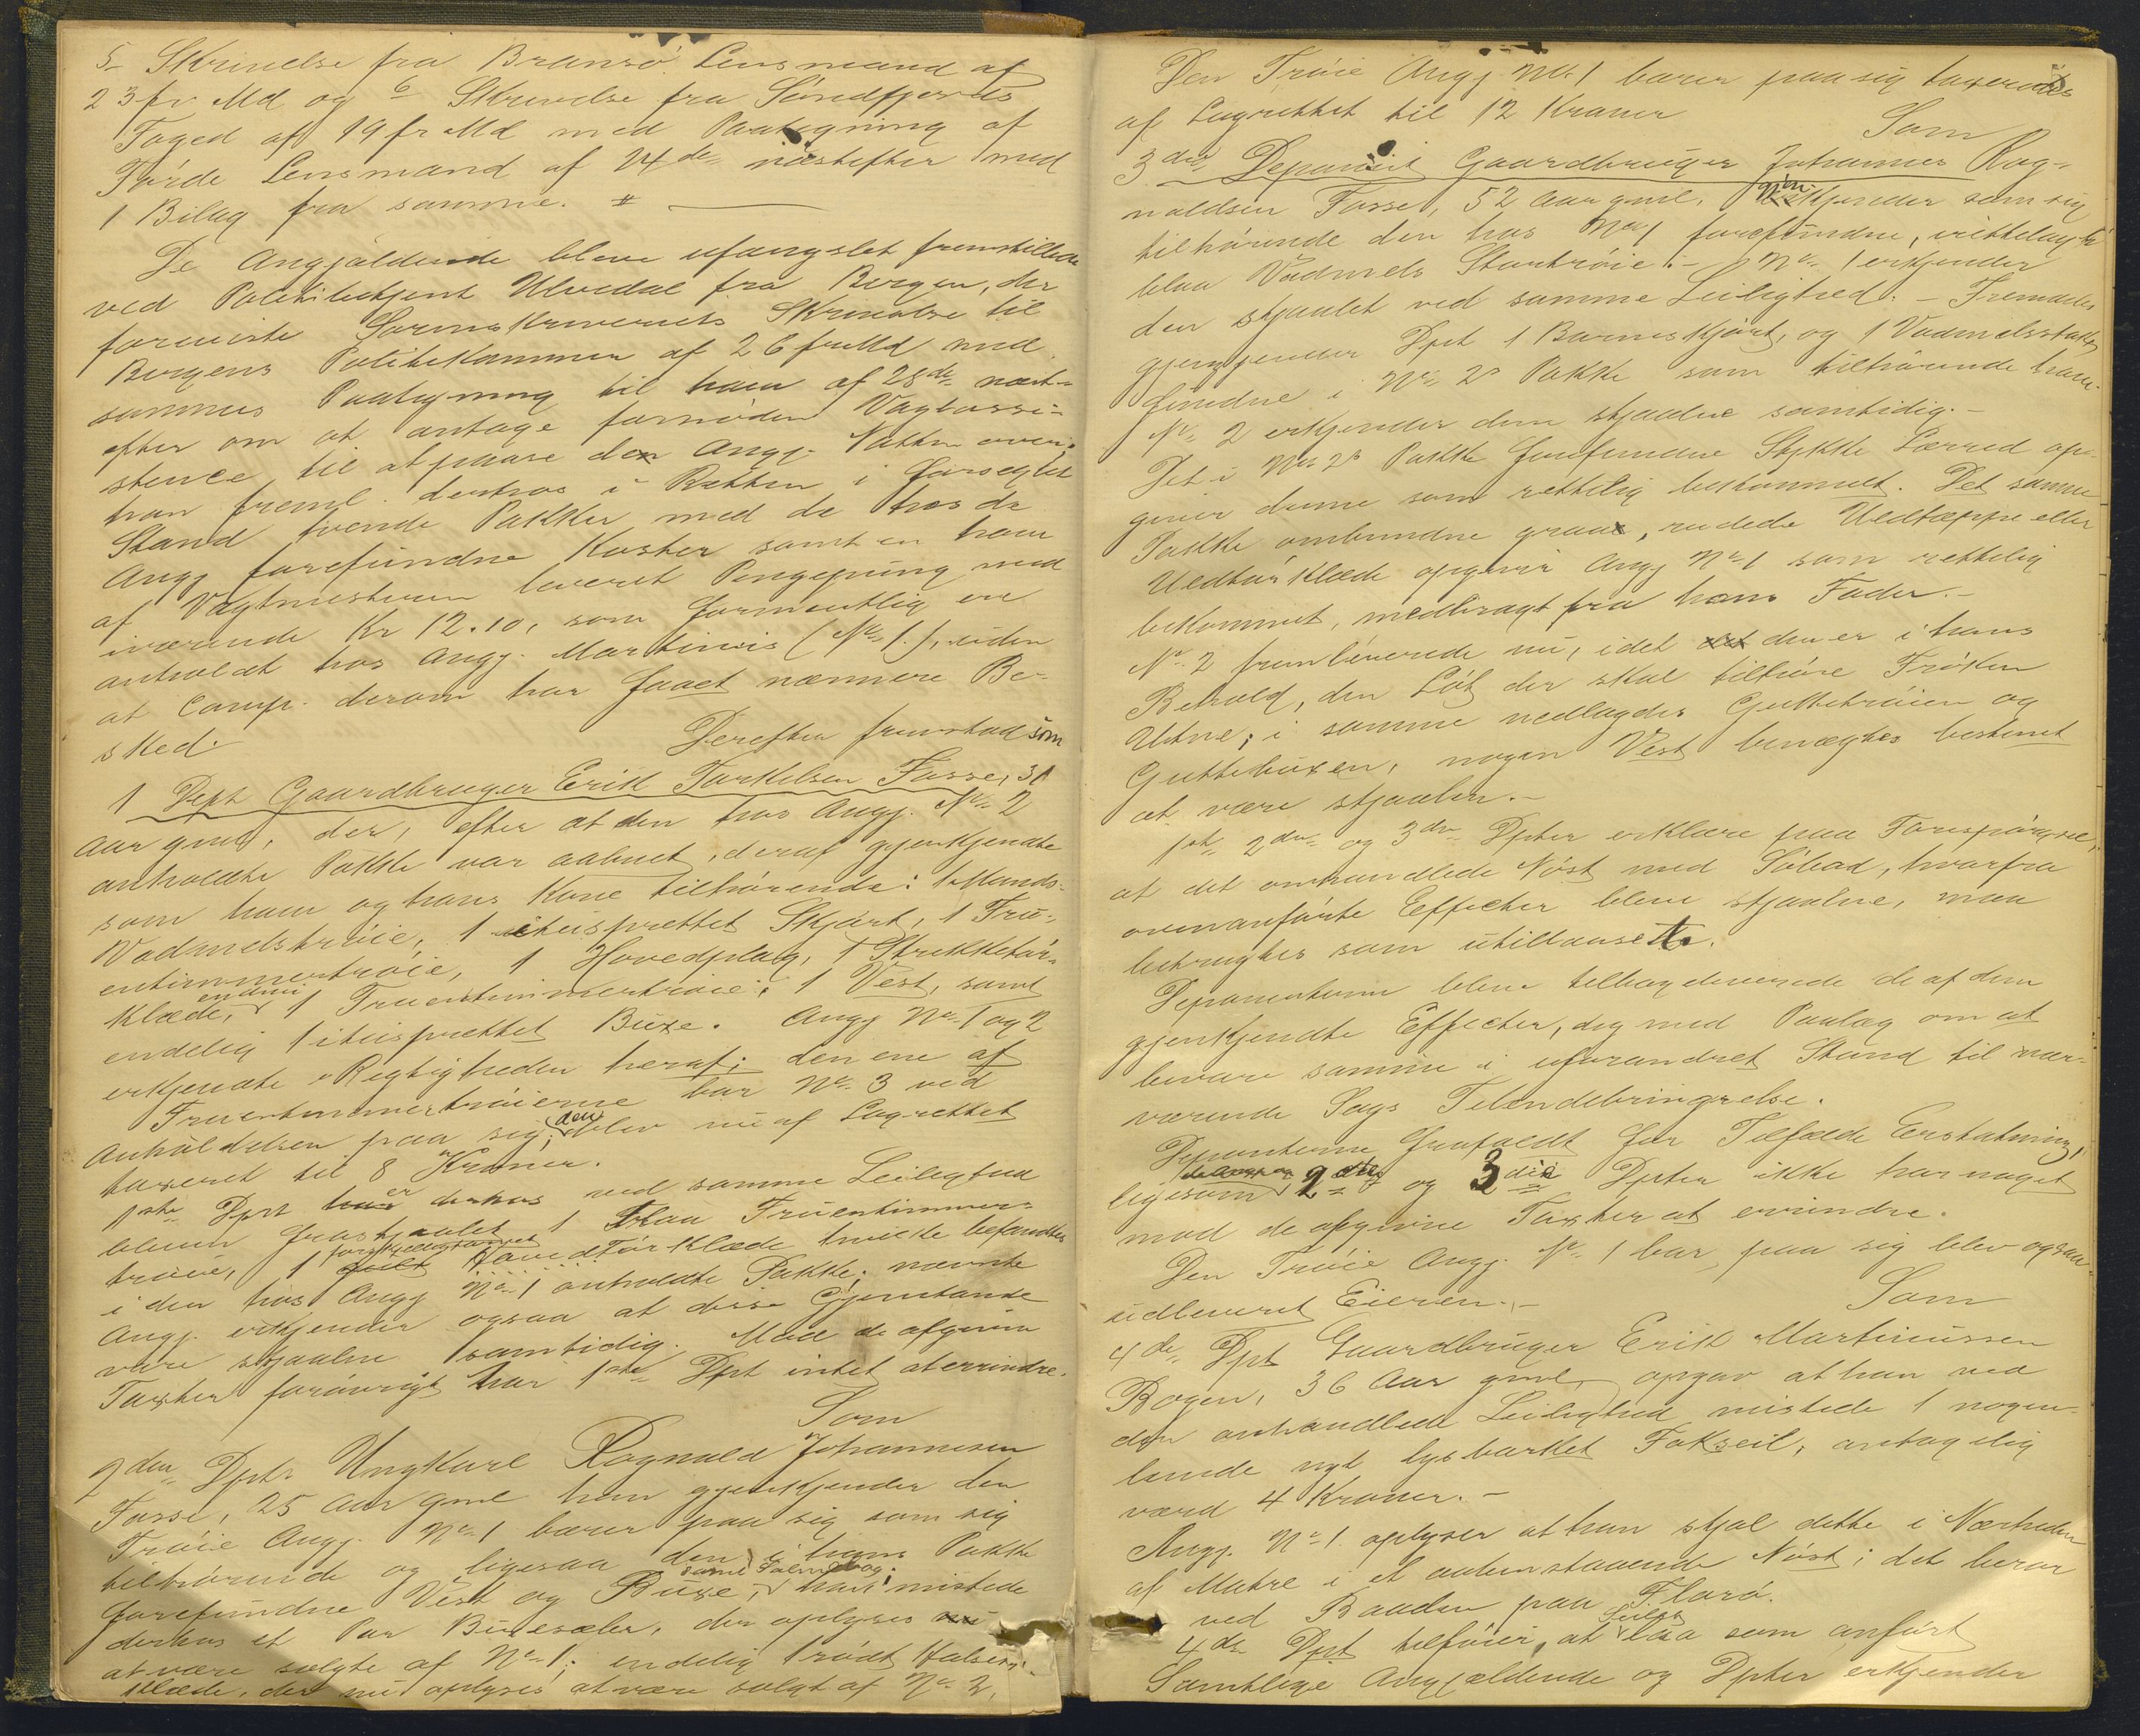 5 Skrivelse fra Bransø Lensmand af
23 fr Md og 6 Skrivelse fra Søndfjords
Foged af 19 fr Md med Paategning af
Førde Lensmand af 24de næstefter med
1 Bilag fra samme. #
De Angjældende bleve ufængslet fremstillede
ved Politibetjent Ulvedal fra Bergen, der
foreviste Sorenskriveriets Skrivelse til
Bergens Politikammer af 26 fr Md med
sammes Paategning til ham af 28de næst-
efter om at antage fornøden Vagtassi-
stence til at passe den Angj. Natten over;
han freml. derhos i Retten i forseglet
Stand tvende Pakker med de hos de
Angj forefundne Koster samt en ham
af Vagtmesteren leveret Pengepung med
iværende Kr 12.10, som formentlig er
anholdt hos Angj. Martinus (No 1.), uden
at Comp. derom har faaet nærmere Be-
sked.
Derefter fremstod som
1 Dept Gaardbruger Erik Torkelsen Fosse, 31
Aar gml, der, efter at den hos Angj. No 2
anholdte Pakke var aabnet, deraf gjenkjendte
som ham og hans Kone tilhørende: 1 Mands-
Vadmelstrøie, 1 itusprettet Skjørt, 1 Fru-
entimmertrøie, 1 Hovedplag, 1 Strikketør-
klæde, endnu 1 Fruentimmertrøie, 1 Vest, samt
endelig 1 itusprettet Buxe. Angj No 1 og 2
erkjendte Rigtigheden heraf; den ene af
Fruentimmertrøierne bar No 3 ved
Anholdelsen paa sig; den blev nu af Lagrettet
taxeret til 8 Kroner.
1ste Dpt er derhos ved samme Leilighed
bleven frastjaalet 1 blaa Fruentimmer-
trøie, 1 Hovedtørklæde hvilke befandtes
i den hos Angj No 1 anholdte Pakke; nævnte
Angj. erkjender ogsaa at disse Gjenstande
vare stjaalne samtidig. Mod de afgivne
Taxter forøvrigt har 1ste Dpt intet at erindre.
Som
2den Dptr Ungkarl Rognald Johannesen
Fosse, 25 Aar gml han gjenkjender den
Trøie Angj. No 1 bærer paa sig som sig
tilhørende og ligesaa den i hans Pakke
forefundne Vest og Buxe, samt Salmebog; han mistede
derhos et Par Buxesæler, der oplyses
at være solgte af No 1; endelig 1 rødt Halstør-
klæde, der nu oplyses at være solgt af No 2,
Den Trøie Angj No 1 bærer paa sig taxeredes
af Lagrettet til 12 Kroner
Som
3die Deponent Gaardbruger Johannes Rog-
naldsen Fosse, 52 Aar gml. Gjenkjender som sig
tilhørende den hos No 1 forefundne, itittelagte
blaa Vadmels Stortrøie. - No 1 erkjender
den stjaalet ved samme Leilighed. - Fremdeles
gjenkjender Dpt 1 Barneskjørt, og 1 Vadmelsstak
fundne i No 2s Pakke som tilhørende ham.
No 2 erkjender dem stjaalne samtidig. -
Det i No 2s Pakke forefundne Stykke Lærred op-
giver denne som rettelig bekommet. Det samme
Pakke ombundne graa, rudede Uldtæppe eller
Uldtørklæde opgiver Angj No 1 som rettelig
bekommet, medbragt fra hans Fader. -
No 2 fremleverede nu, idet den er i hans
Behold, den Løb der skal tilhøre Frøken
Utne; i samme nedlagdes Guttetrøien og
Guttebuxen, nogen Vest benægtes bestemt
at være stjaalen. -
1ste 2den og 3die Dpter erklære paa Forespørgsel,
at det omhandlede Nøst med Søbod, hvorfra
ovenanførte Effecter bleve stjaalne, maa
betragtes som utillaasede.
Deponenterne bleve tilbageleverede de af dem
gjenkjendte Effecter, dog med Paalæg om at
bevare samme i uforandret Stand til nær-
værende Sags Tilendebringelse.
Deponenterne frafaldt for Tilfælde Erstatning,
ligesom 2den og 3die Dpter ikke har noget
mod de afgivne Taxter at erindre.
Den Trøie Angj. No 1 bar paa sig blev ogsaa
udleveret Eieren. -
Som
4de Dpt Gaardbruger Erik Martinussen
Bogen, 36 Aar gml, opgav at han ved
den omhandlede Leilighed mistede 1 nogen-
lunde nyt lysbarket Fokseil, antagelig
værd 4 Kroner. -
Angj. No 1 oplyser at han stjal dette i Nærheden
af Matre i et aabenstaaende Nøst; det beror
ved Baaden paa Florø.
4de Dpt tilføier, at Seilet laa som anført
Samtlige Angjældende og Dpter erkjender